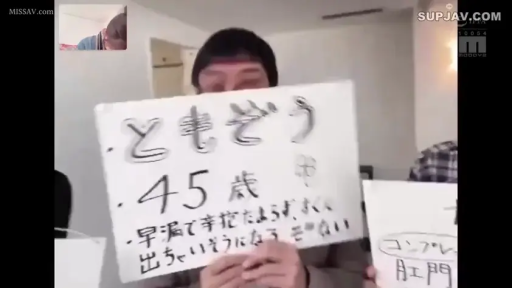 MISSAV.com
SUPJAV.COM
・ともぞう
・45歳
・早漏で辛抱たまらず、すぐに
出ちゃいそうになる
コンプレ
肛門